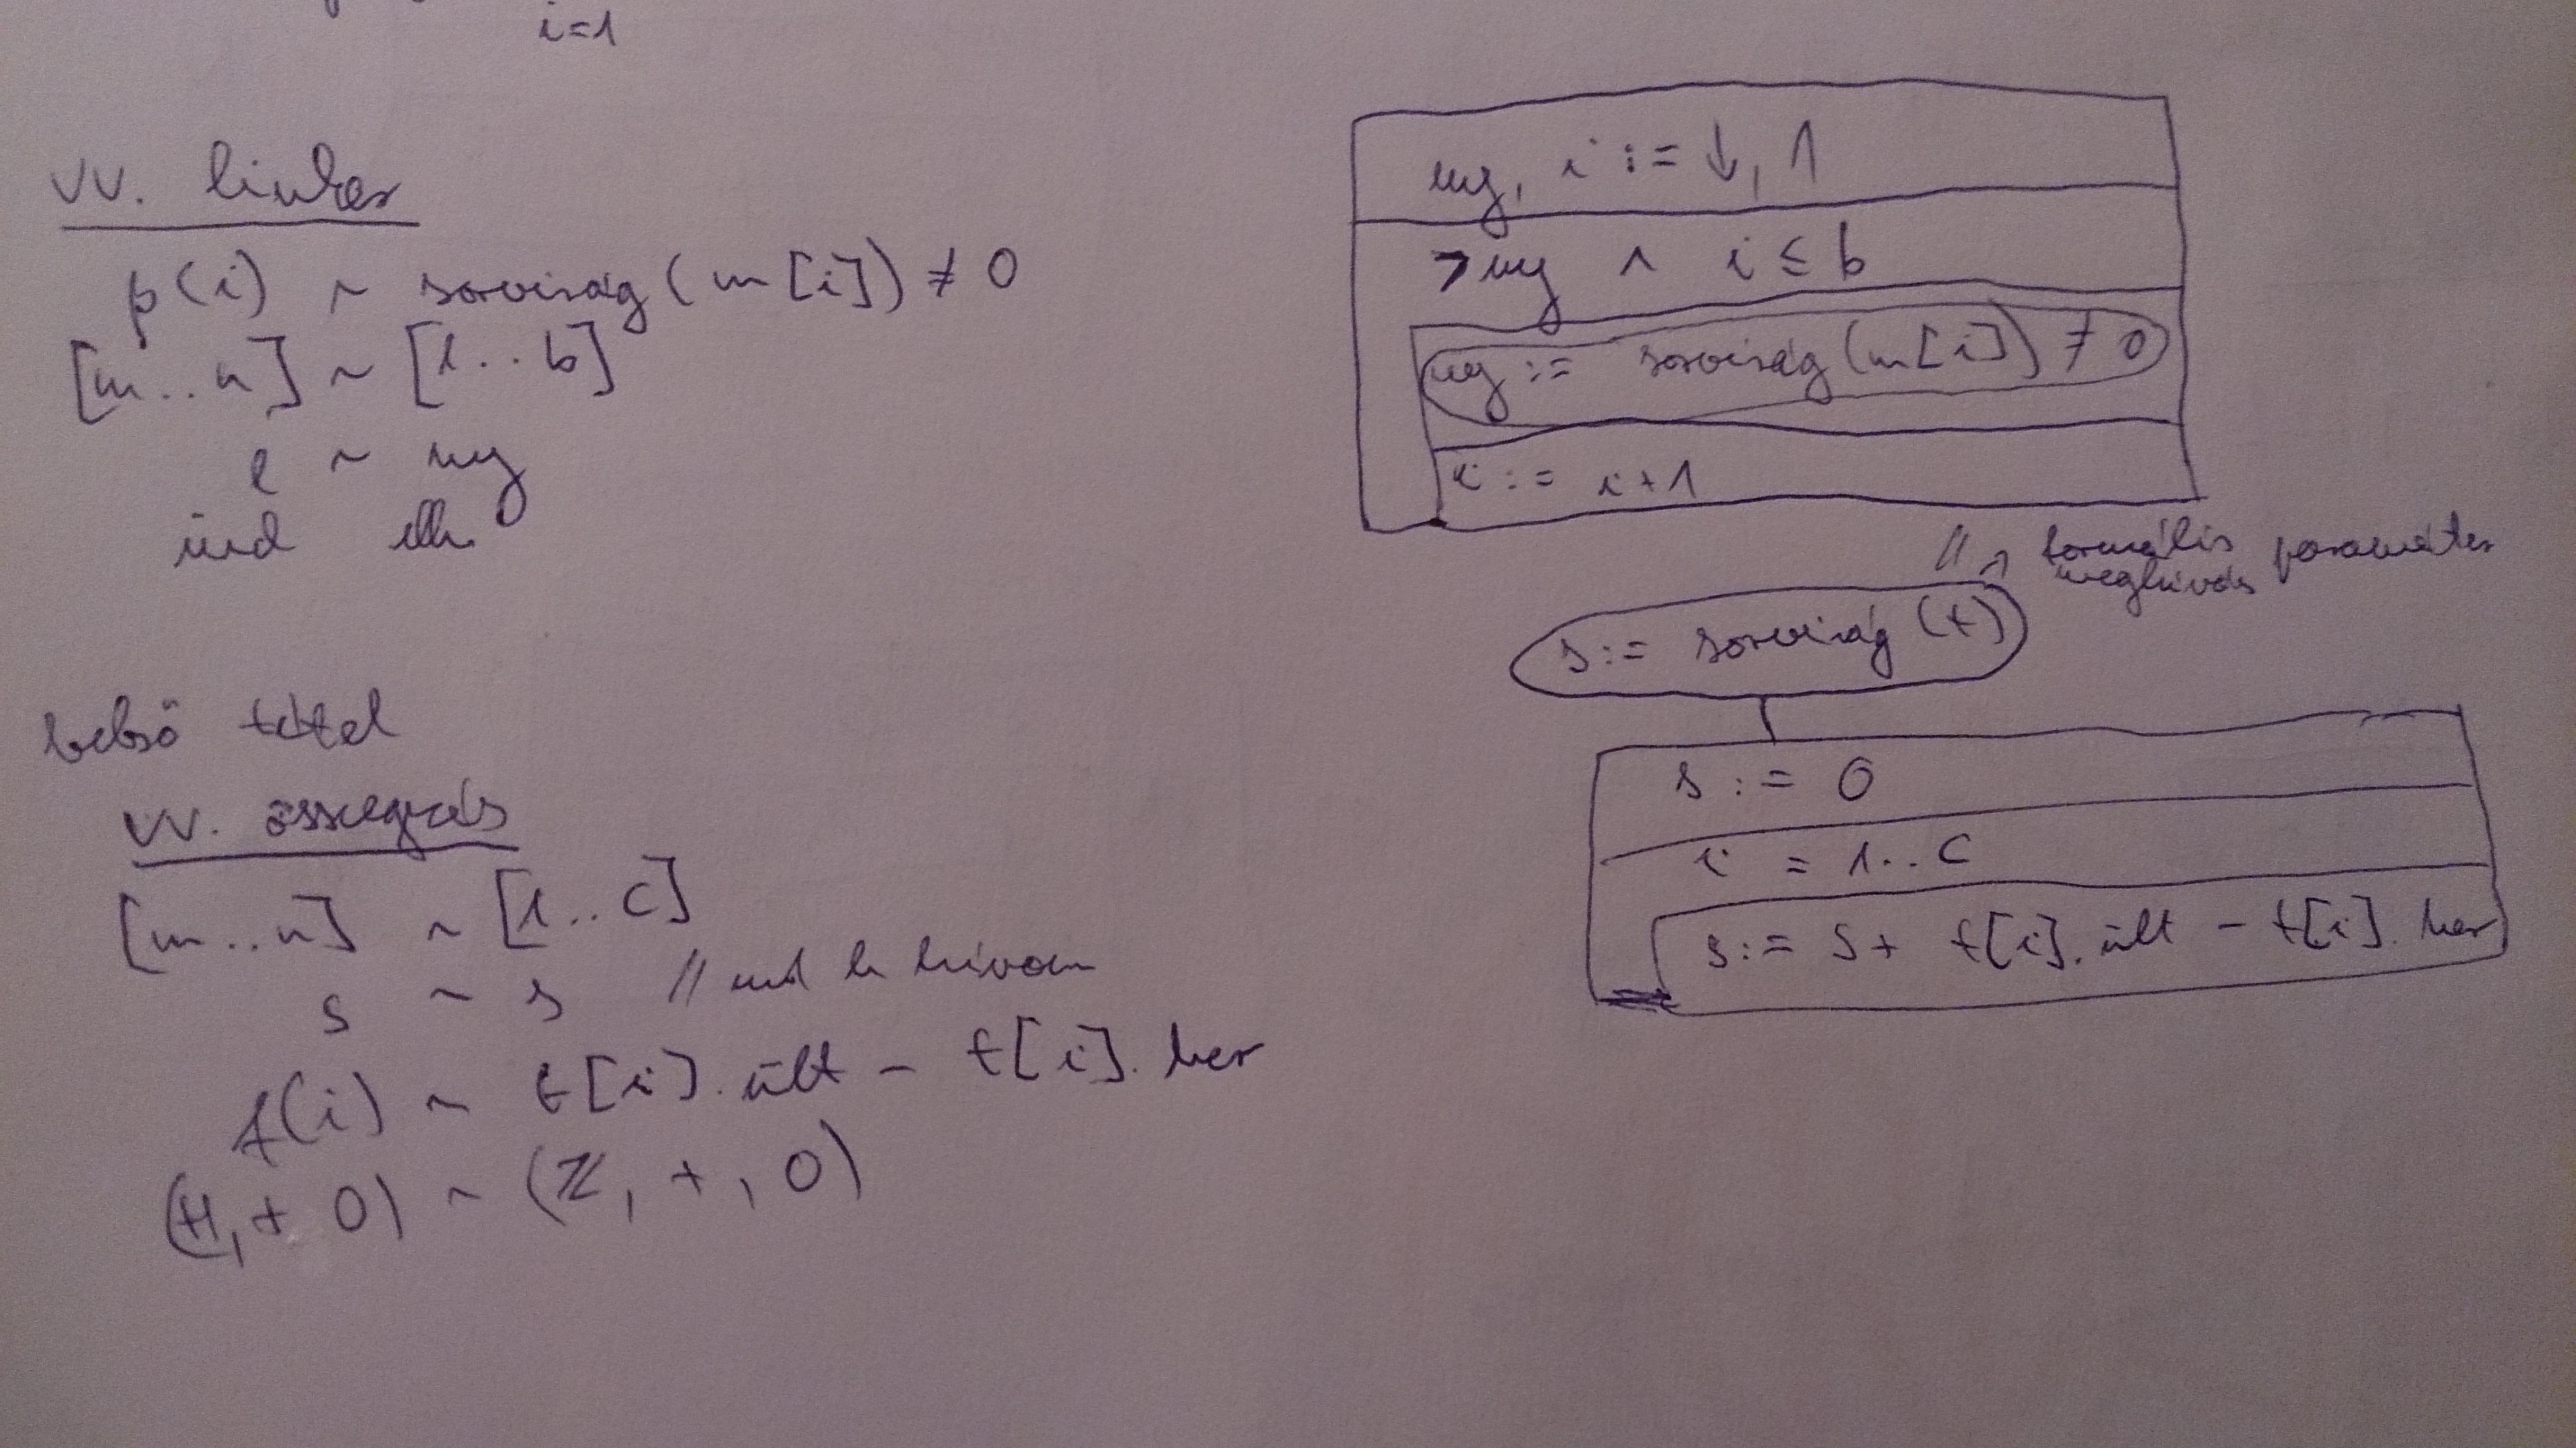 i=1
vv. linker
p(i) ~ sorvirág(m[i]) ≠ 0
[m..n] ~ [1..b]
l ~ ny
ind elh.
belső tétel
vv. összegzés
[m..n] ~ [1..c]
s ~ s // hívom
f(i) ~ t[i].ült - t[i].her
(H,+ 0) ~ (ℤ, +, 0)
ny, i := ↓, 1
¬ny ∧ i ≤ b
ny := sorvirág(m[i]) ≠ 0
i := i+1
// formális paraméter
meghívás
s := sorvirág(t)
s := 0
i = 1..c
s := s + t[i].ült - t[i].her